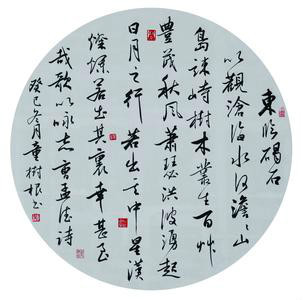 東临碣石
以觀滄海水何澹澹山
島竦峙樹木叢生百艸
豐茂秋風蕭瑟洪波湧起
日月之行若出其中星漢
燦爛若出其裏幸甚至
哉歌以咏志曹孟德詩
癸巳冬月童樹根书